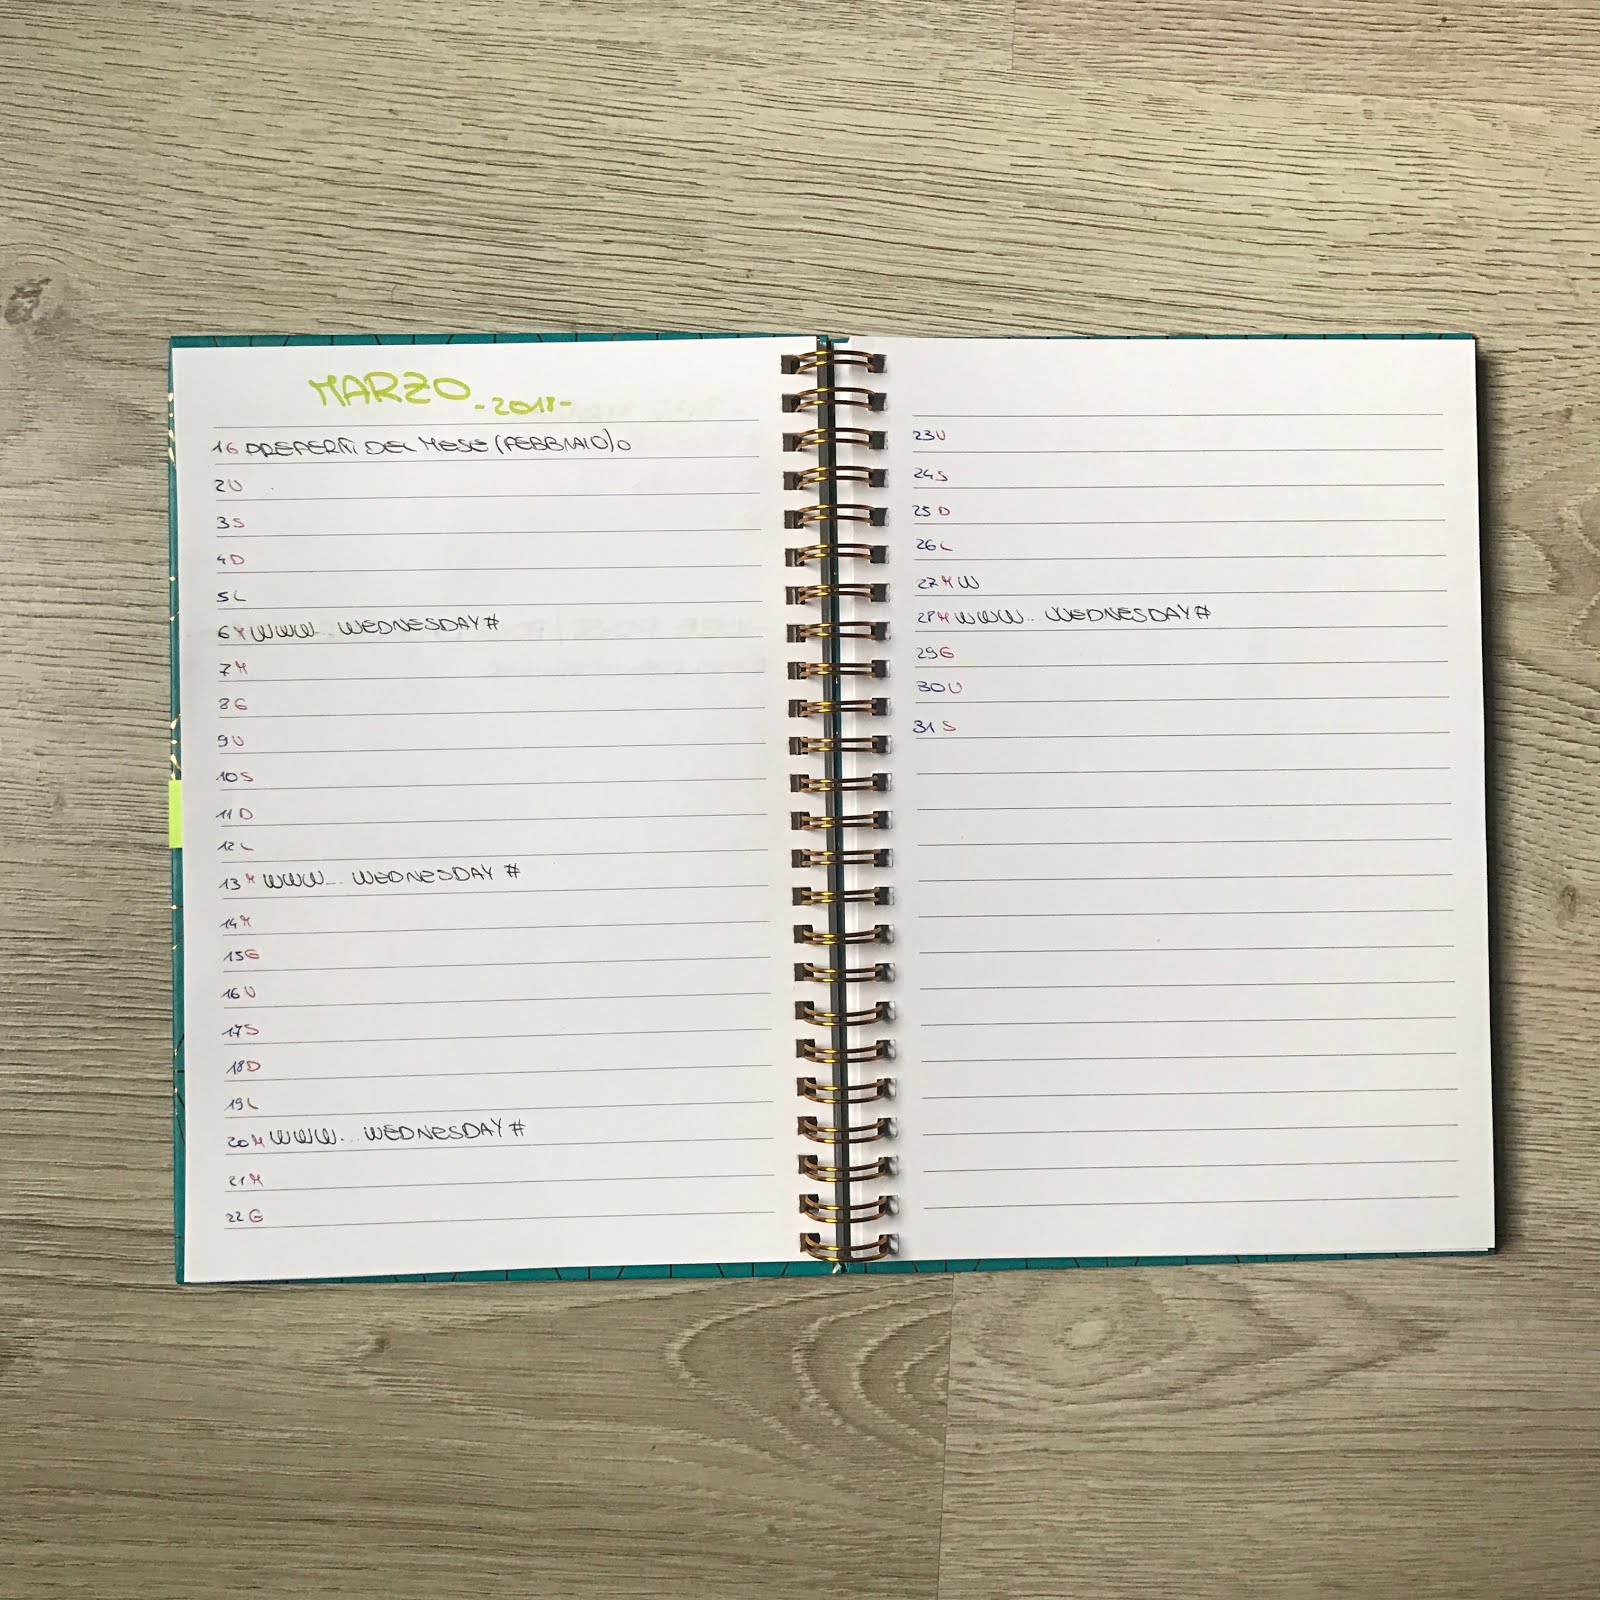 MARZO -2018-
1G PREFERITI DEL MESE (FEBBRAIO) o
2V
3S
4D
5L
6M WWW... WEDNESDAY #
7M
8G
9V
10S
11D
12L
13M WWW... WEDNESDAY #
14M
15G
16V
17S
18D
19L
20M WWW... WEDNESDAY #
21M
22G
23V
24S
25D
26L
27M W
28M WWW... WEDNESDAY #
29G
30V
31S